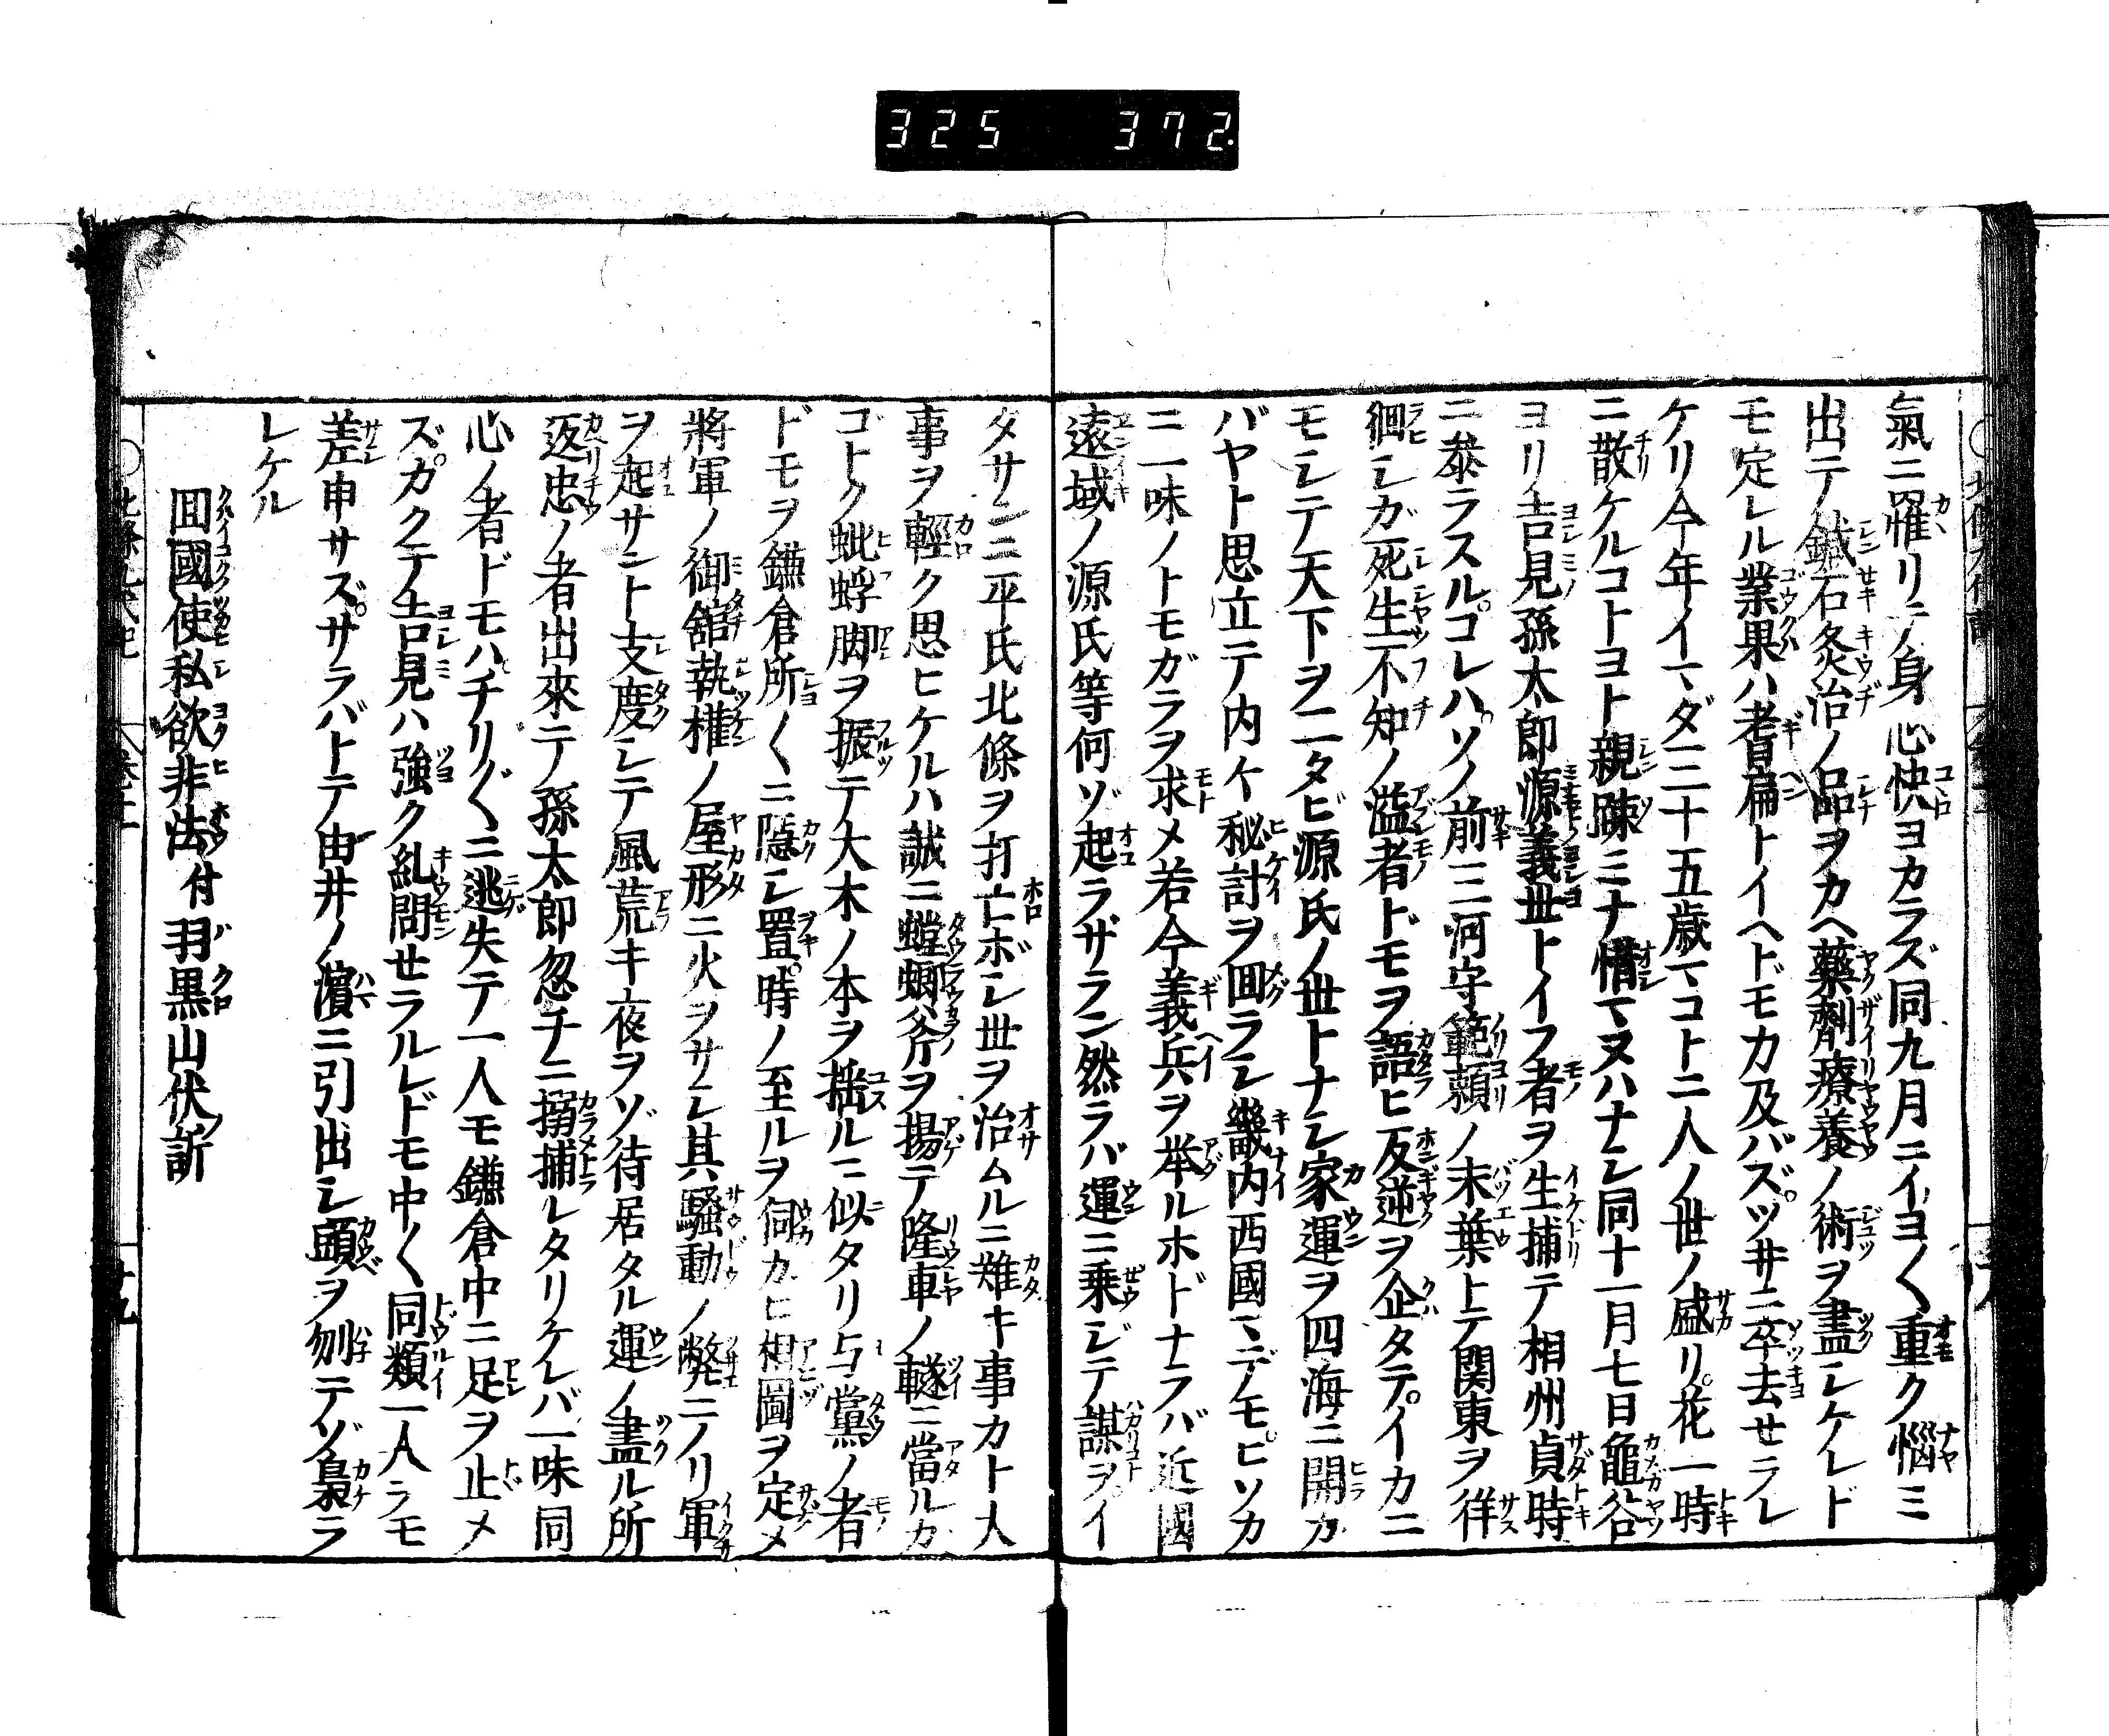 325 372.
氣ニ罹リテ身心快ヨカラズ同九月ニイヨ〱重ク惱ミ
出テ鍼石灸治ノ品ヲカヘ藥劑療養ノ術ヲ盡シケレド
モ定レル業果ハ耆扁トイヘドモ力及バズツ井ニ卒去セラレ
ケリ今年イマダ三十五歳マコトニ人ノ世ノ盛リ花一時
ニ散ケルコトヨト親疎ミナ惜マヌハナシ同十一月七日龜谷
ヨリ吉見孫太郎源義世トイフ者ヲ生捕テ相州貞時
ニ泰ラスルコレハソノ前三河守範頼ノ末葉トテ関東ヲ徉
徊シガ死生不知ノ溢者ドモヲ語ヒ反逆ヲ企タテイカニ
モシテ天下ヲ二タビ源氏ノ世トナシ家運ヲ四海ニ開カ
バヤト思立テ内々秘計ヲ囬ラシ畿内西國マデモヒソカ
ニ一味ノトモガラヲ求メ若今義兵ヲ举ルホドナラバ近國
遠域ノ源氏等何ゾ起ラザラン然ラバ運ニ乗ジテ謀ヲイ
タサンニ平氏北條ヲ打亡ボシ世ヲ治ムルニ難キ事カト大
事ヲ輕ク思ヒケルハ誠ニ螳螂斧ヲ揚テ隆車ノ轍ニ當ルカ
ゴトク蚍蜉脚ヲ振テ大木ノ本ヲ揺ルニ似タリ与黨ノ者
ドモヲ鎌倉所〱ニ隱シ置時ノ至ルヲ伺カヒ相圖ヲ定メ
將軍ノ御舘執權ノ屋形ニ火ヲサシ其騷動ノ弊ニノリ軍
ヲ起サント支度シテ風荒キ夜ヲゾ待居タル運ノ盡ル所
返忠ノ者出來テ孫太郎忽チニ搦捕レタリケレバ一味同
心ノ者ドモハチリ〲ニ逃失テ一人モ鎌倉中ニ足ヲ止メ
ズカクテ吉見ハ強ク糺問セラルレドモ中〱同類一人ラモ
差申サズサラバトテ由井ノ濵ニ引出シ頭ヲ刎テゾ梟ラ
レケル
囬國使私欲非法付羽黒山伏訴